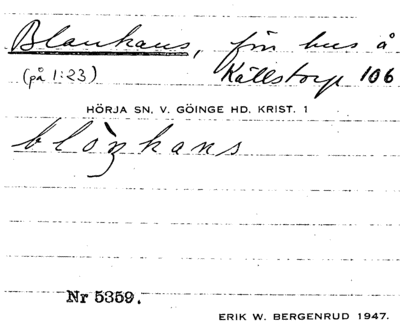 Blankans, fin hus å
(på 1:23) Källstorp 106
HÖRJA SN, V. GÖINGE HD. KRIST. 1
Nr 5359.
ERIK W. BERGENRUD 1947.